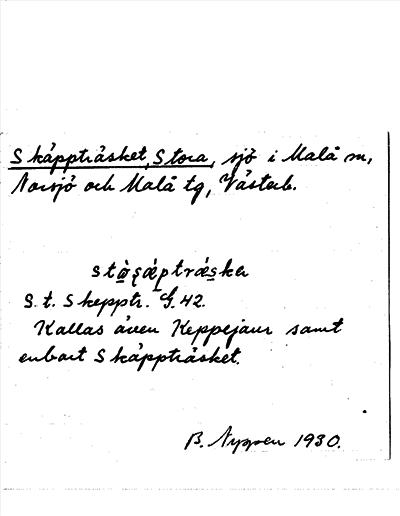 Skäppträsket, Stora, sjö i Malå sn,
Norsjö och Malå tg, Västerb.
S.t. Skepptr. G.42.
Kallas även Keppejaur samt
enbart Skäppträsket.
B. Nyppen 1930.